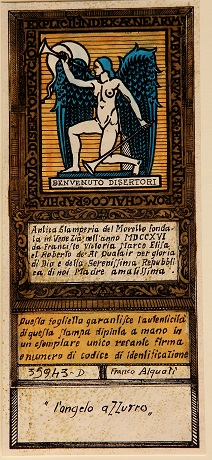 BENVENUTO DISERTORI
Antica Stamperia del Moretto fonda-
ta in Venezia nell'anno MDCCXVI
da Francisco Victoria, Marco Elisa
et Roberto de At Qualair per gloria
di Dio e della Serenissima Repubbli
ca di noi Madre amatissima
Questo foglietto garantisce l'autenticità
di questa stampa dipinta a mano in
un esemplare unico recante firma
e numero di codice di identificazione
35943-D Franco Alquati
"l'angelo azzurro"